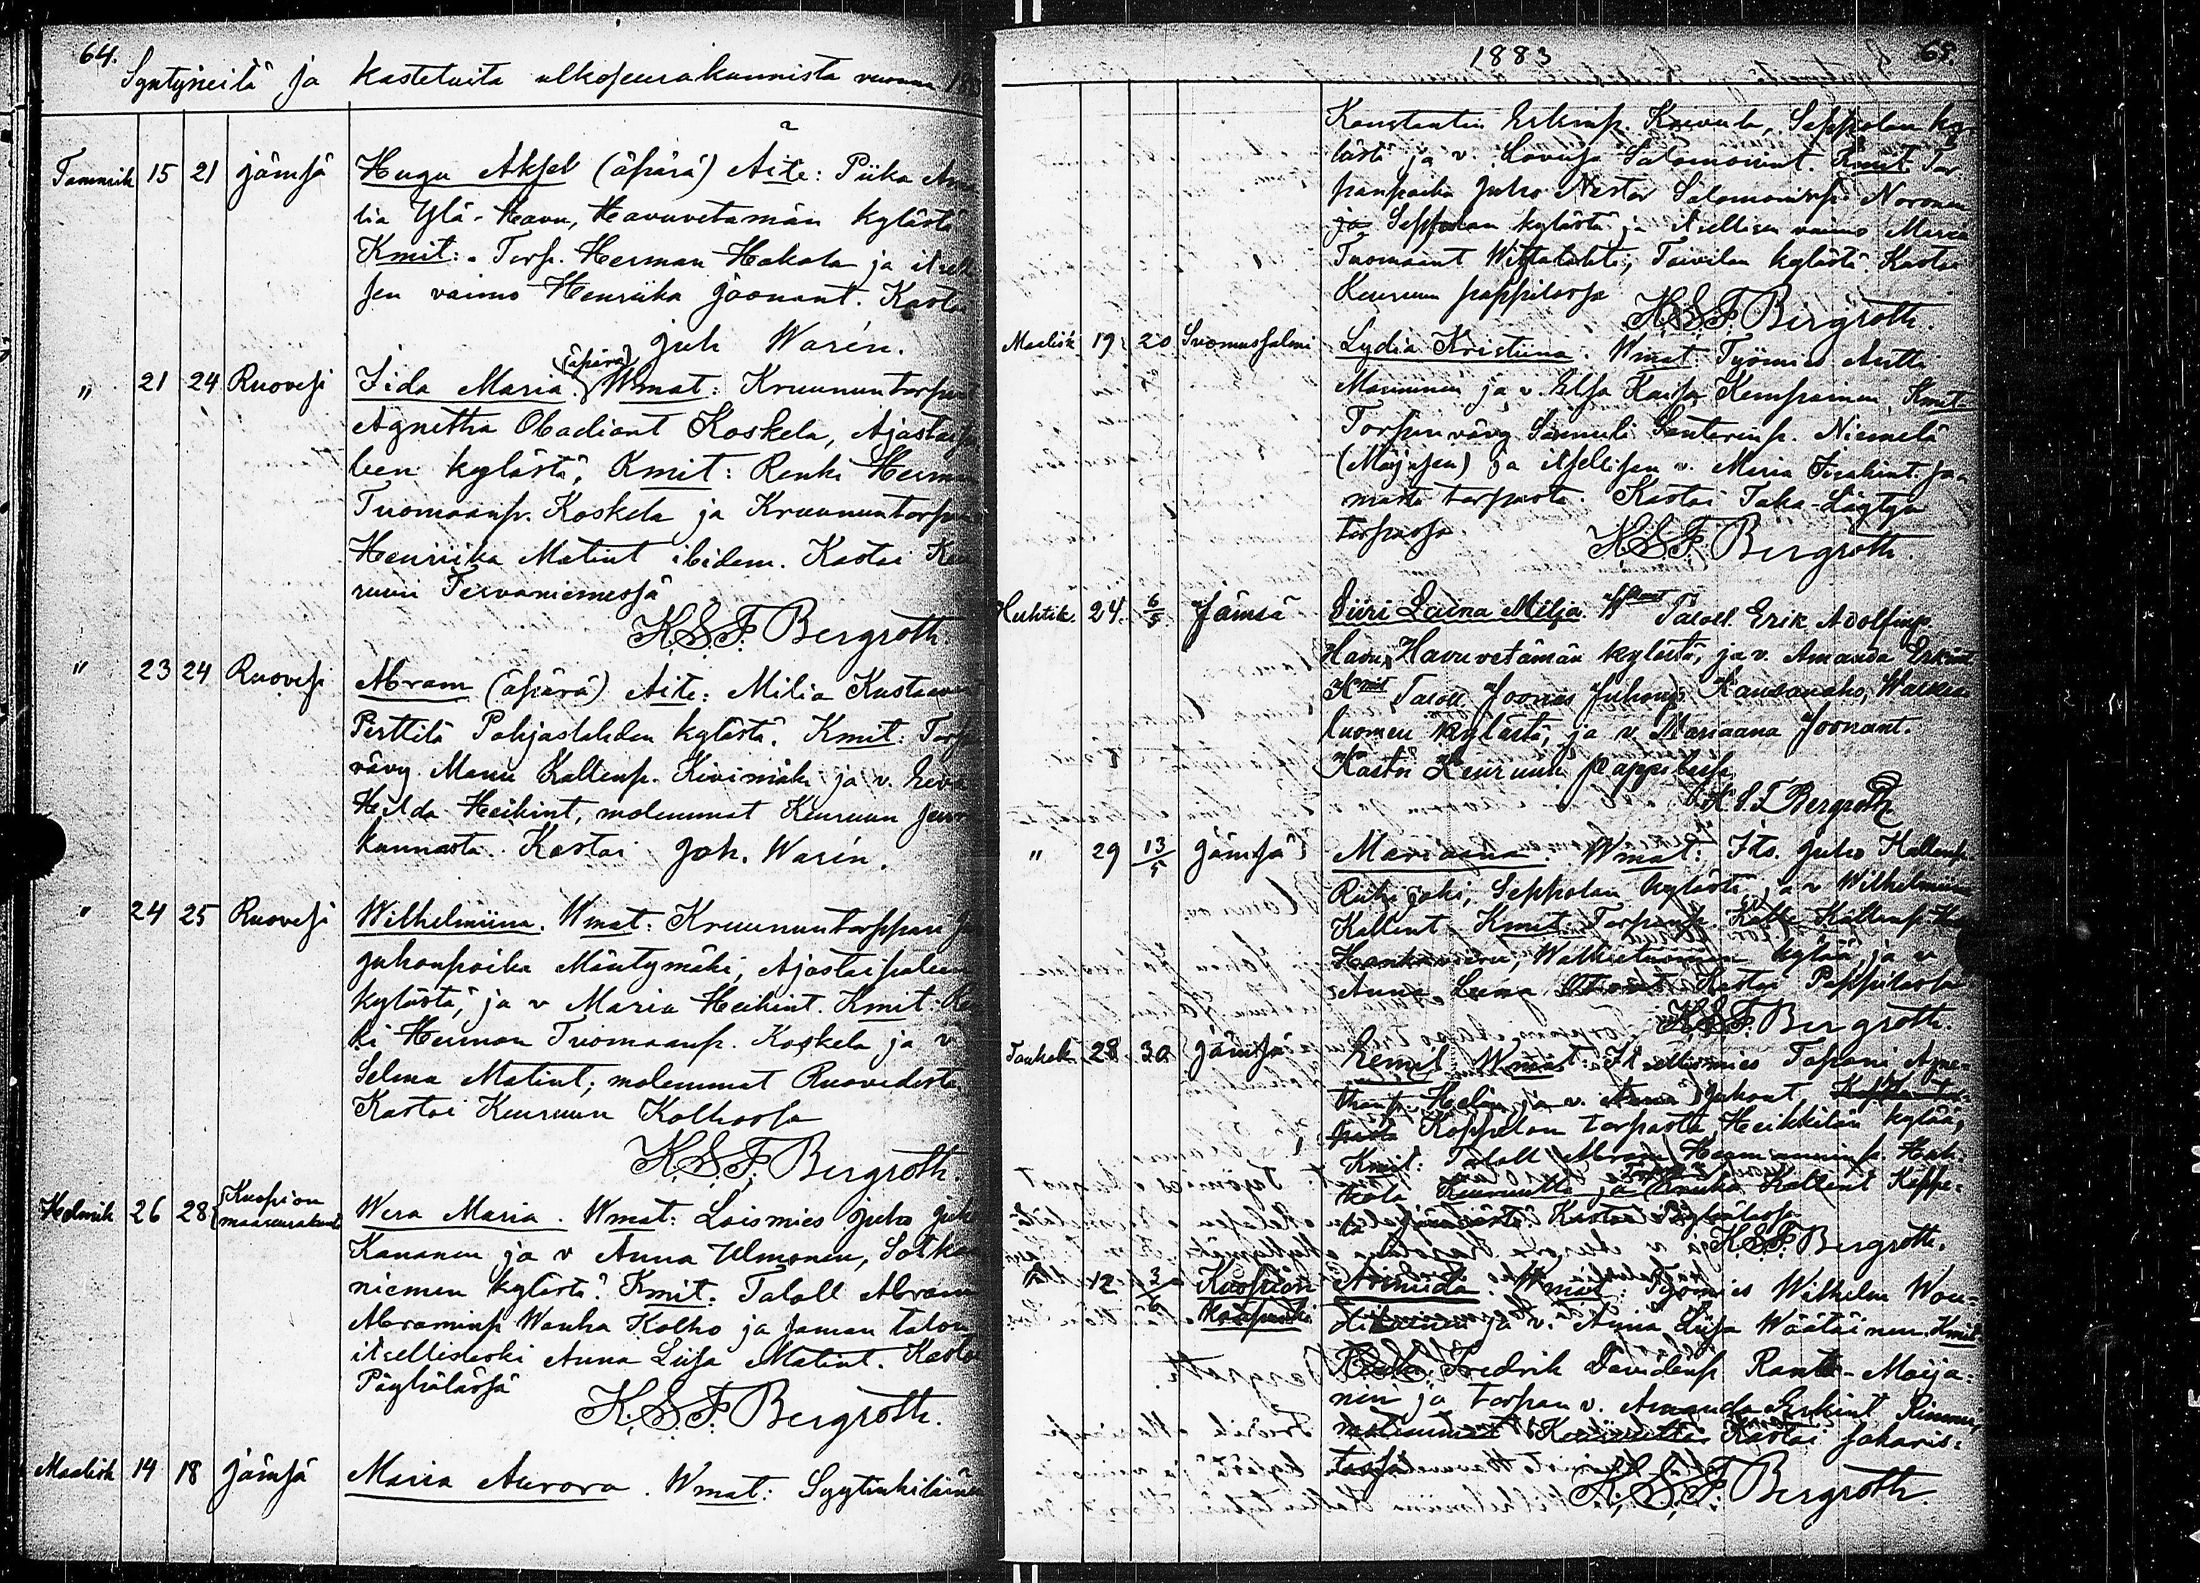 64.
Syntyneitä ja kastetuita ulkoseurakunnista vuonna
Tammik 15 21 Jämsä Hugu Aksel (äpärä) Äite: Piika Ama
lia Ylä-Havu, Havuvetamän kylästä
Kmit: Torp. Herman Hakala ja itsel
sen vaimo Henriika Joonant. Kastoi
Joh Warén.
" 21 24 Ruovesi Iida Maria. (äpärä) Wmat: Kruununtorpari
Agnetha Obadiant Koskela, Ajostaipa
leen kylästä, Kmit: Renki Herman
Tuomaanp. Koskela ja Kruununtorpari
Henriika Matint ibidem. Kastoi Keu
ruun Tervaniemessä
K.S.F. Bergroth.
" 23 24 Ruovesi Abram (äpärä) Äite: Milia Kustaavint
Perttilä Pohjaslahden kylästä. Kmit: Torp.
vävy Manu Kallenp. Kivimäki ja v. Eeva
Hilda Heikint, molemmat Keuruun seura
kunnasta. Kastoi Joh. Warén.
" 24 25 Ruovesi Wilhelmiina. Wmat: Kruununtorppari
Juhonpoika Mäntymäki, Ajostaipaleen
kylästä, ja v Maria Heikint. Kmit: Ren
ki Herman Tuomaanp. Koskela ja v
Selma Matint, molemmat Ruovedestä
Kastoi Keuruun Kolhossa
K.S.F. Bergroth.
Helmik 26 28 Kuopion maaseurakunta Wera Maria. Wmat: Loismies Juho Juh
Kananen ja v Anna Ulmonen, Sotka
niemen kylästä. Kmit: Taloll Abram
Abraminp Wanha Kolho ja saman talon
itsellisleski Anna Liisa Matint. Kastoi
Pöyhölässä
K.S.F. Bergroth.
Maalisk 14 18 Jämsä Maria Aurora. Wmat: Syytinkiläinen
1883
65.
Konstantin Erkinp. Koivula, Seppolan ky-
lästä ja v. Lovisa Salomonint. Kmit: Tor-
panpoika Juho Nestor Salomoninp. Noronen
ja Seppolan kylästä ja itsellisen vaimo Maria
Tuomaant Wittalahti, Toivilan kylästä. Kastoi
Keuruun pappilassa
K.S.F. Bergroth.
Maalisk 19 20 Suomussalmi Lydia Kristiina. Wmat: Työmies Antti
Manninen ja v. Elsa Kaisa Kemppainen. Kmit:
Torpan vävy Samuli Santerinp. Niemelä
ja itsellisen v. Maria Iisakint sa-
masta torpasta. Kastoi Taka-Löytyn
torpassa.
K.S.F. Bergroth.
Huhtik. 24. 6/5 Jämsä Siiri Laina Milja. Wmat Taloll. Erik Adolfinp.
Havu, Havuvetämän kylästä, ja v. Amanda Erkint
Kmit Taloll Joonas Juhonp. Kansanaho, Walkea
luomen kylästä, ja v. Mariaana Joonant.
Kastoi Keuruun pappilassa
K S F Bergroth
" 29 13/5 Jämsä Mariaana. Wmat: Its. Juho Kallenp.
Riihijoki, Seppolan kylästä, ja v Wilhelmiina
Kallint. Kmit: Torpanp. Kalle Kallenp.
kylää ja v
Anna Leena Kastoi Pappilassa
K.S.F. Bergroth.
Toukok 28 30 Jämsä Eemil. Wmat: Itsellismies Tapani Agne-
thanp. Helin ja v. Anna Juhont,
Koppelon torpasta Heikkilän kylää,
Kmit: Taloll Abram Hermanninp. Hak-
kola Keuruulta ja Kallent Koppe-
lo Jämsästä. Kastoi Pöyhölässä
K.S.F. Bergroth.
12 3/6 Kuopion kaupunki Armida. Wmat: Työmies Wilhelm Wou-
tilainen ja v. Anna Liisa Wäätäinen. Kmit:
Renki Fredrik Davidinp Ranta-Maija-
nen ja torpan v. Amanda Erkint Rimmi,
molemmat Keuruulta. Kastoi sakaris-
tossa
K.S.F. Bergroth.